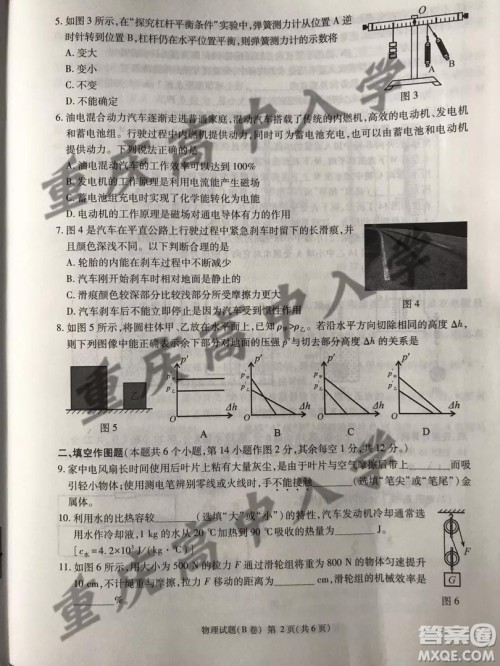 5. 如图3所示,在“探究杠杆平衡条件”实验中,弹簧测力计从位置A逆
时针转到位置B,杠杆仍在水平位置平衡,则弹簧测力计的示数
A. 变大
B. 变小
C. 不变
D. 不能确定
图3
A
B
6. 油电混合动力汽车逐渐走进普通家庭,混动汽车搭载了传统的内燃机,高效的电动机、发电机
和蓄电池组。行驶过程中内燃机提供动力,同时可为蓄电池充电,也可以由蓄电池和电动机
提供动力。下列说法正确的是
A. 油电混动汽车的工作效率可以达到100%
B. 发电机的工作原理是利用电流能产生磁场
C. 蓄电池组充电时实现了化学能转化为电能
D. 电动机的工作原理是磁场对通电导体有力的作用
7. 图4是汽车在平直公路上行驶过程中紧急刹车时留下的滑痕,并
且颜色深浅不同。以下判断合理的是
A. 轮胎的花纹是为了减小摩擦
B. 汽车刚开始刹车时相对地面是静止的
C. 滑痕颜色较深部分比较浅部分所受摩擦力更大
D. 刹车后汽车不能立即停止是因为汽车受到惯性力
图4
8. 如图5所示,将圆柱体甲、乙放在水平面上,已知ρ甲>ρ乙。若沿水平方向切除相同的高度Δh,
则下列图像中能正确表示余下部分对地面的压强p'与切去部分高度Δh的关系是
乙
图5
p'
p甲
p乙
Δh
A
p'
p甲
p乙
Δh
B
p'
p甲
p乙
Δh
C
p'
p甲
p乙
Δh
D
二、填空作图题(本题共6个小题,第14小题作图2分,其余每空1分,共12分。)
9. 家中电风扇长时间使用后叶片上粘有大量灰尘,是由于扇叶转动时与空气摩擦后带上____而吸
引轻小物体;使用测电笔辨别零线或火线时,手不能接触____(选填“笔尖”或“笔尾”)金
属体。
10. 利用水的比热容较____(选填“大”或“小”)的特性,汽车发动机冷却剂通常
用水作冷却液,1 kg的水从20 ℃加热到90 ℃吸收的热量为____J。
[c水=4.2×10³J/(kg·℃)]
11. 如图6所示,用大小为500 N的拉力F通过滑轮组将重为800 N的物体匀速提升
10 cm,不计绳重与摩擦,拉力F移动的距离为____cm,滑轮组的机械效率是
____。
F
G
图6
物理试题(B卷) 第2页(共6页)
重庆高中入学
重庆高中入学
重庆高中入学
答案圈
MXQE.COM